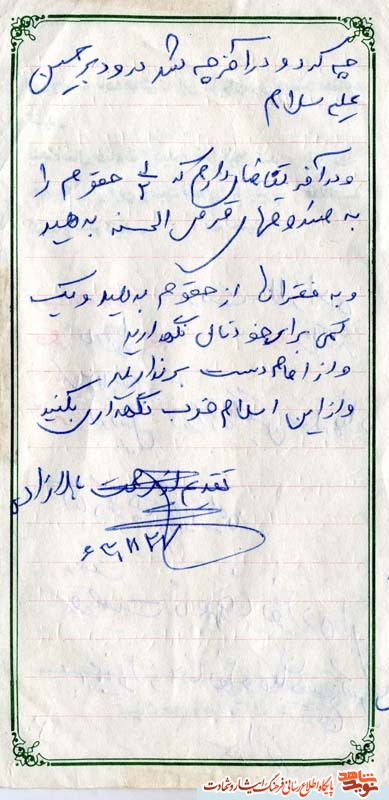 چه کرد و در آخر چه شد درود بر حسین
علی سلام
و در آخر تقاضا دارم که ۱/۲ حقوقم را
به صندوقهای قرض الحسنه بدهید
و به فقرا از حقوقم بدهید و یک
کمی برای خودتان نگهدارید
و از امام دست برندارید
و از این اسلام خوب نگهداری بکنید
تقدیم
نوید شاهد
پایگاه اطلاع رسانی فرهنگ ایثار و شهادت